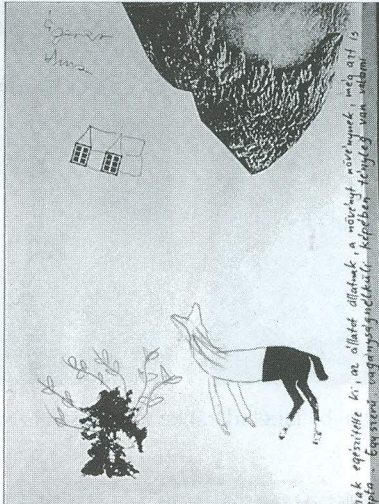 nak egészítette ki, az állatot állatnak, a növényt növénynek, még azt is
Egyszerű vagányságnélküli képében tényleg van valami